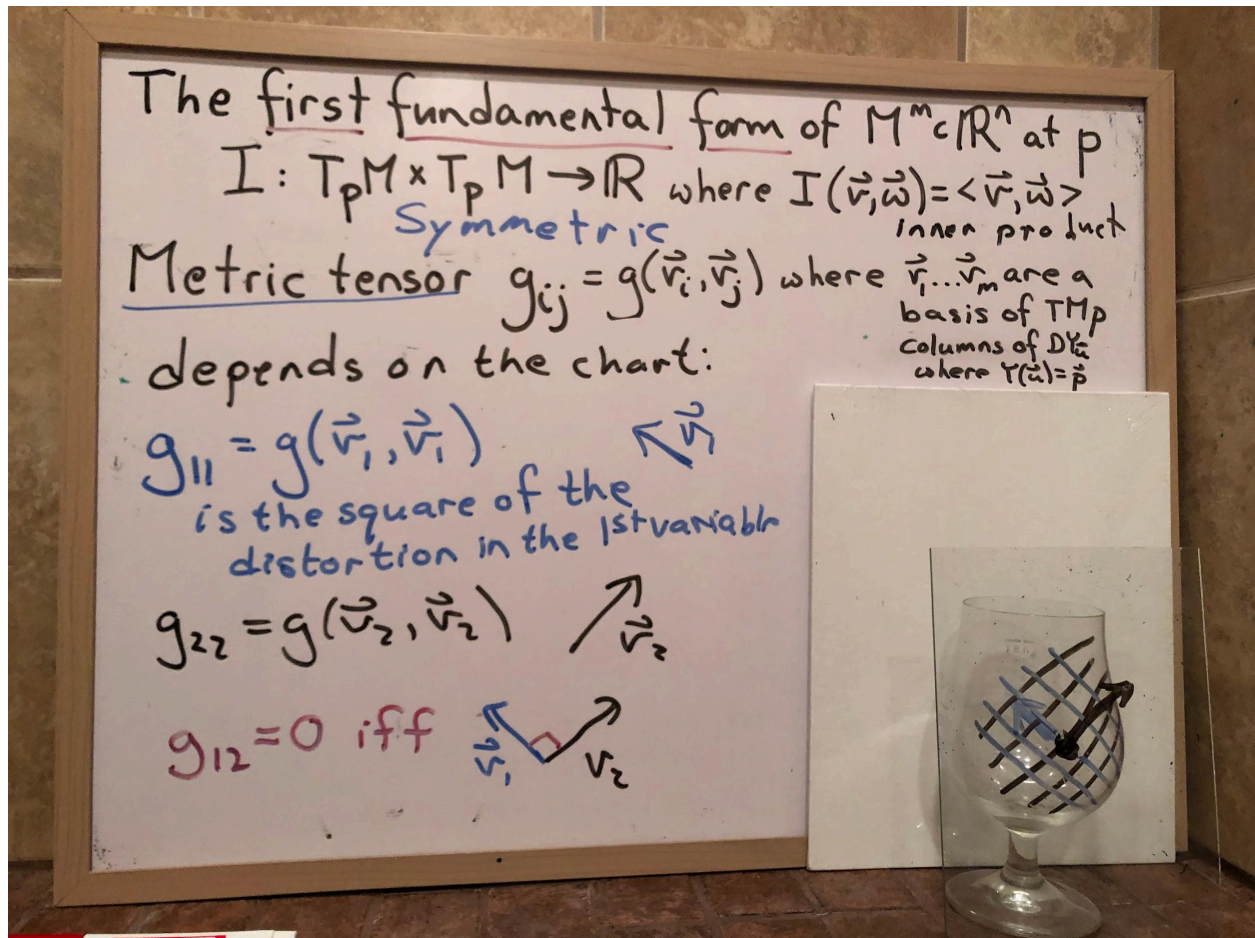 The first fundamental form of Mᵐ⊂ℝⁿ at p
I: TₚM × TₚM → ℝ where I(v⃗,w⃗)=<v⃗,w⃗>
Symmetric
inner product
Metric tensor gᵢⱼ = g(v⃗ᵢ,v⃗ⱼ) where v⃗₁...v⃗ₘ are a
basis of TMp
columns of DΥu⃗
where Υ(u⃗)=p⃗
depends on the chart:
g₁₁ = g(v⃗₁,v⃗₁)
v⃗₁
is the square of the
distortion in the 1st variable
g₂₂ = g(v⃗₂,v⃗₂)
v⃗₂
g₁₂=0 iff
v⃗₁
v₂